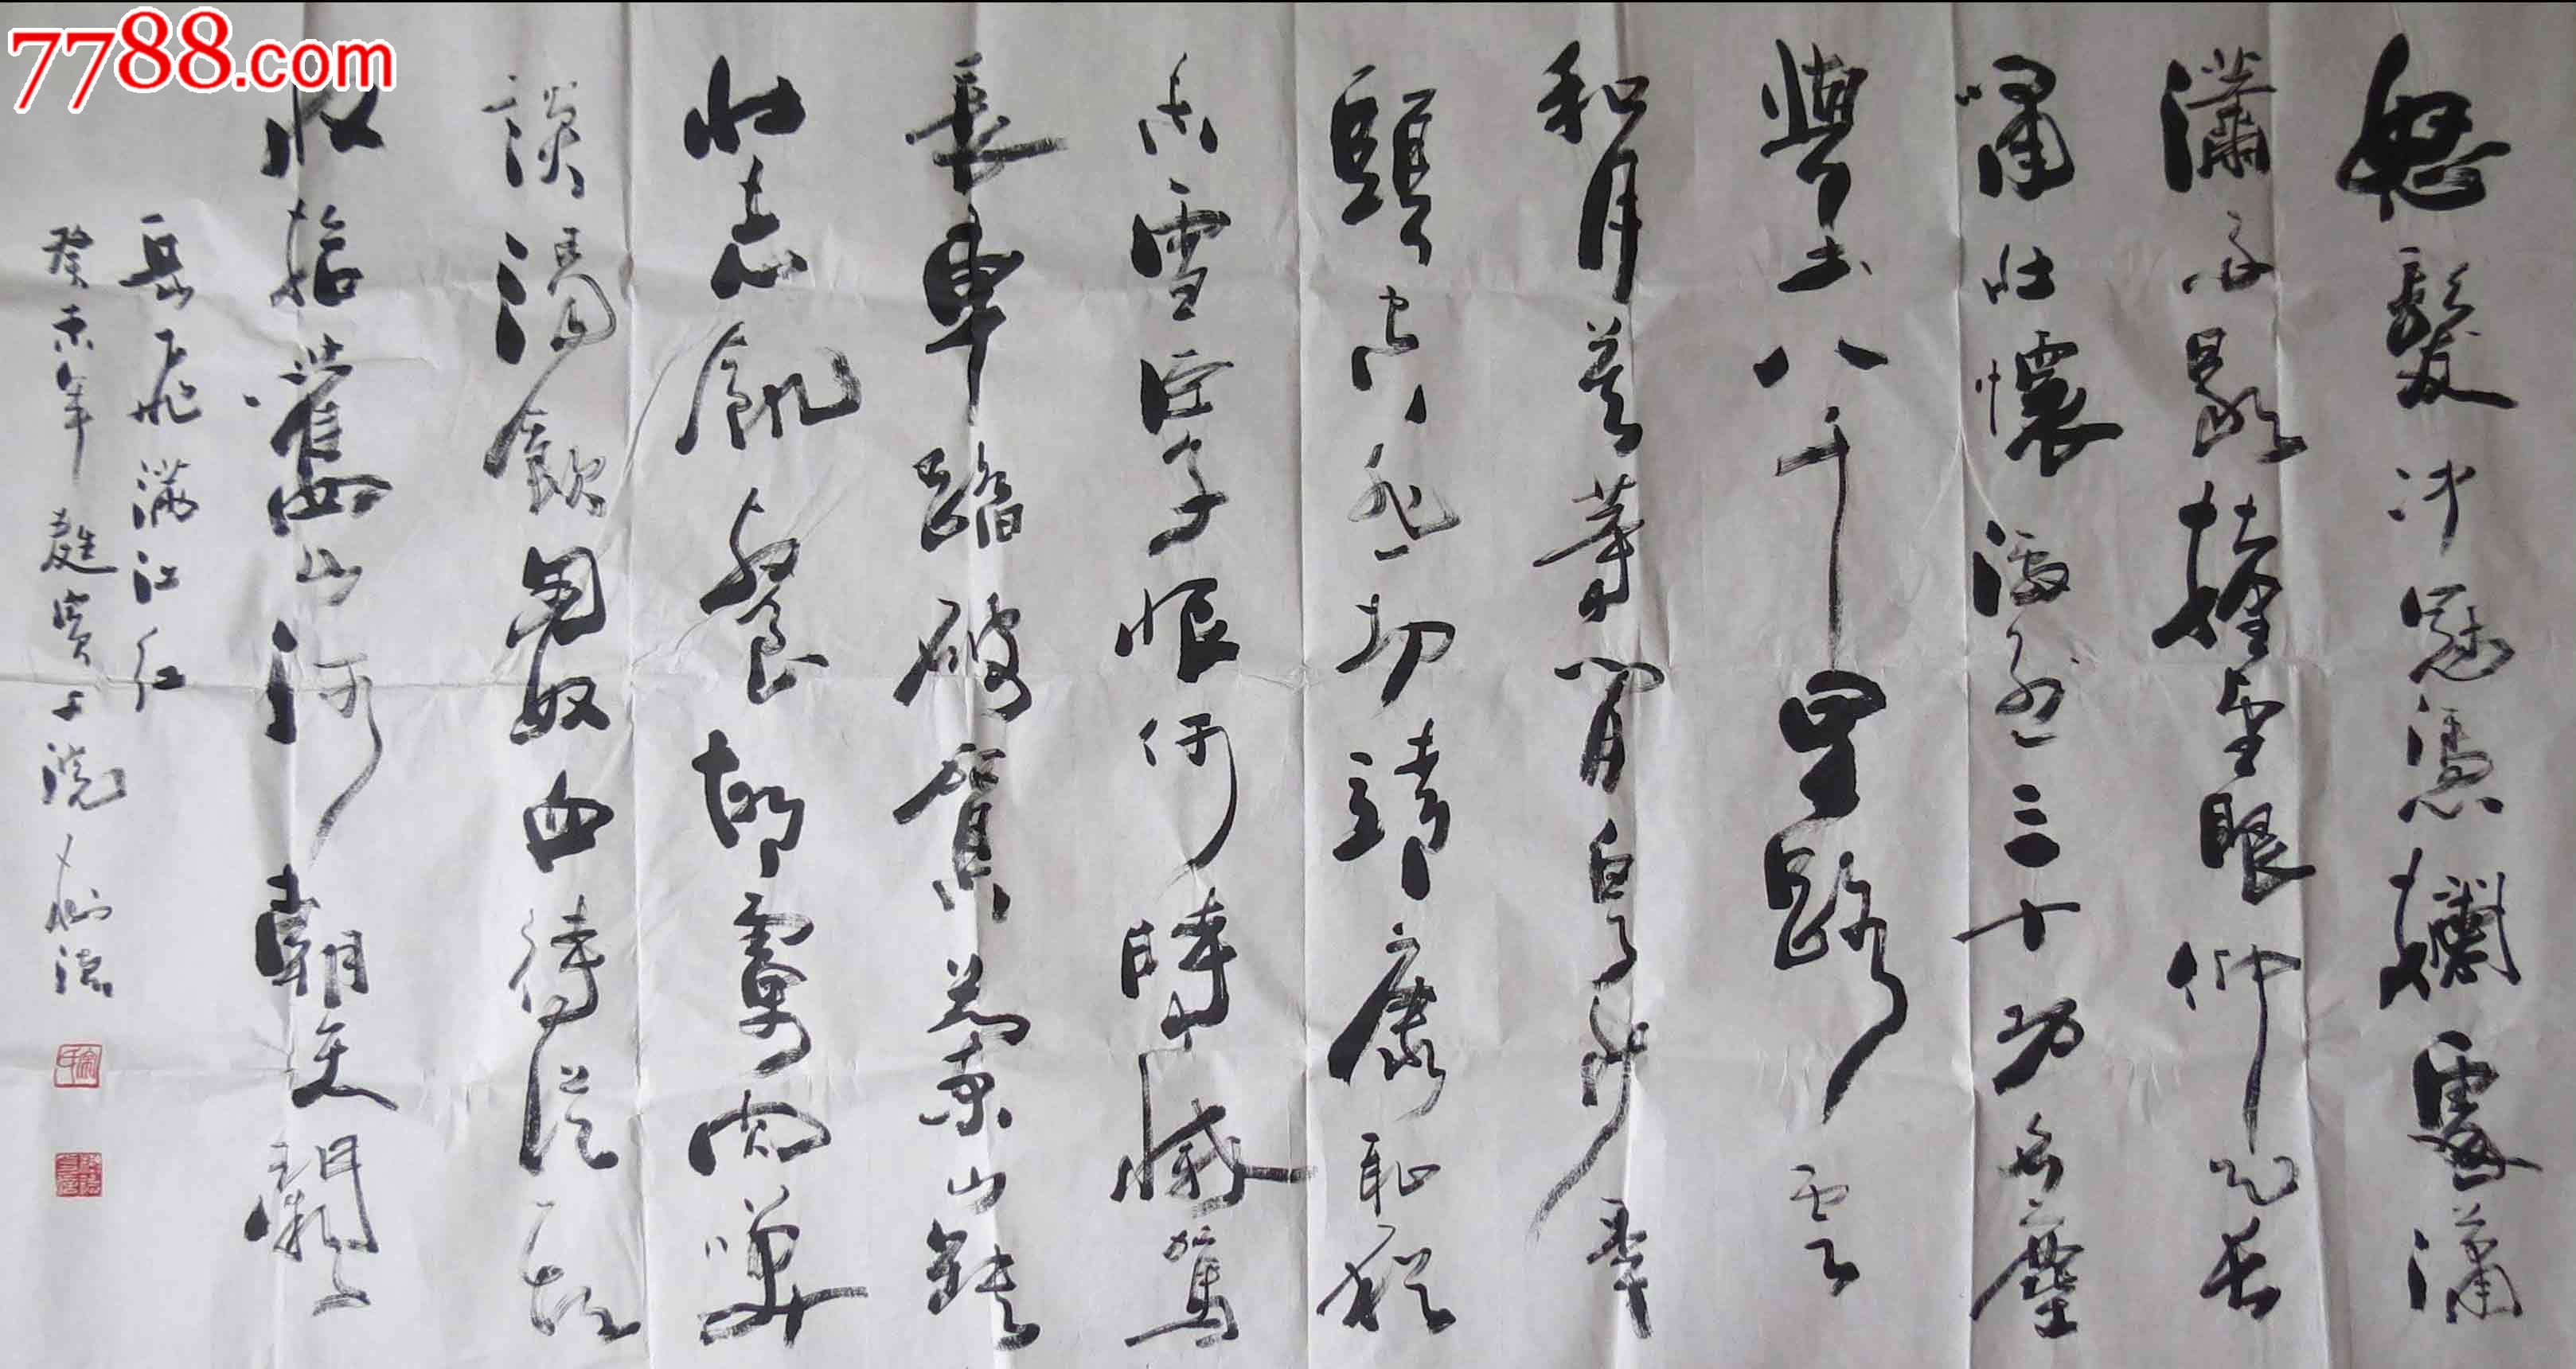 7788.com
怒髮冲冠憑欄處瀟
瀟雨歇擡望眼仰天長
嘯壯懷激烈三十功名塵
與土八千里路雲
和月莫等閒白了少年
頭空悲切靖康恥猶
未雪臣子恨何時滅駕
長車踏破賀蘭山缺
壯志飢餐胡虜肉笑
談渴飲匈奴血待從頭
收拾舊山河朝天闕
岳飛滿江紅
癸未年賓上浣